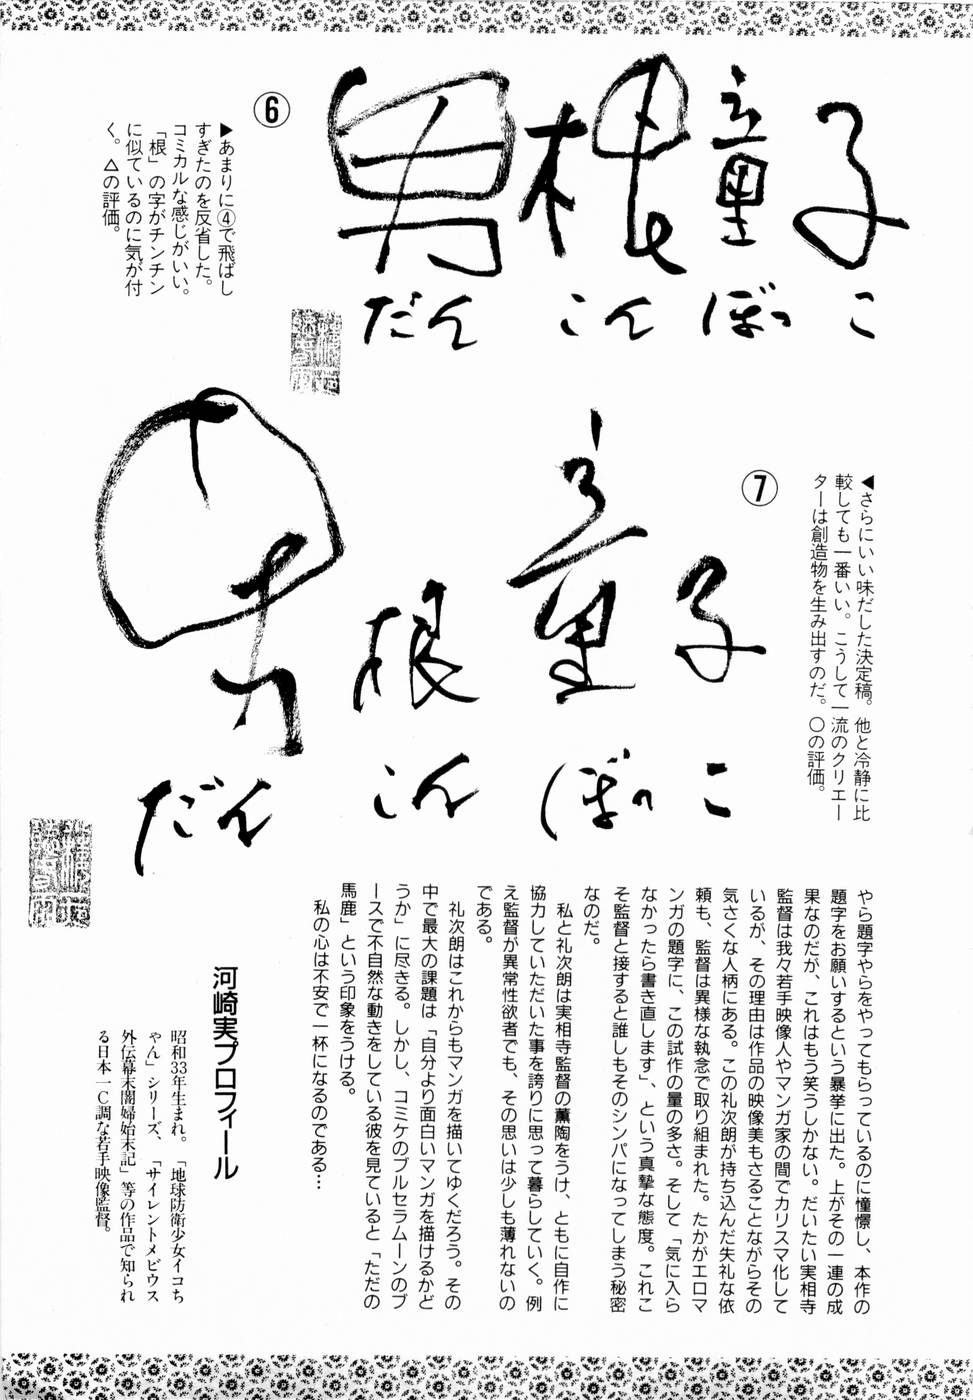 ⑥
男根童子
だんこんぼっこ
▶あまりに④で飛ばし
すぎたのを反省した。
コミカルな感じがいい。
「根」の字がチンチン
に似ているのに気が付
く。△の評価。
⑦
男根童子
だんこんぼっこ
◀さらにいい味だした決定稿。他と冷静に比
較しても一番いい。こうして一流のクリエー
ターは創造物を生み出すのだ。〇の評価。
やら題字やらをやってもらっているのに憧憬し、本作の
題字をお願いするという暴挙に出た。上がその一連の成
果なのだが、これはもう笑うしかない。だいたい実相寺
監督は我々若手映像人やマンガ家の間でカリスマ化して
いるが、その理由は作品の映像美もさることながらその
気さくな人柄にある。この礼次朗が持ち込んだ失礼な依
頼も、監督は異様な執念で取り組まれた。たかがエロマ
ンガの題字に、この試作の量の多さ。そして「気に入ら
なかったら書き直します」、という真摯な態度。これこ
そ監督と接すると誰しもそのシンパになってしまう秘密
なのだ。
私と礼次朗は実相寺監督の薫陶をうけ、ともに自作に
協力していただいた事を誇りに思って暮らしていく。例
え監督が異常性欲者でも、その思いは少しも薄れないの
である。
礼次朗はこれからもマンガを描いてゆくだろう。その
中で最大の課題は「自分より面白いマンガを描けるかど
うか」に尽きる。しかし、コミケのブルセラムーンのブ
ースで不自然な動きをしている彼を見ていると「ただの
馬鹿」という印象をうける。
私の心は不安で一杯になるのである…
河崎実プロフィール
昭和33年生まれ。「地球防衛少女イコち
ゃん」シリーズ、「サイレントメビウス
外伝幕末闇婦始末記」等の作品で知られ
る日本一C調な若手映像監督。